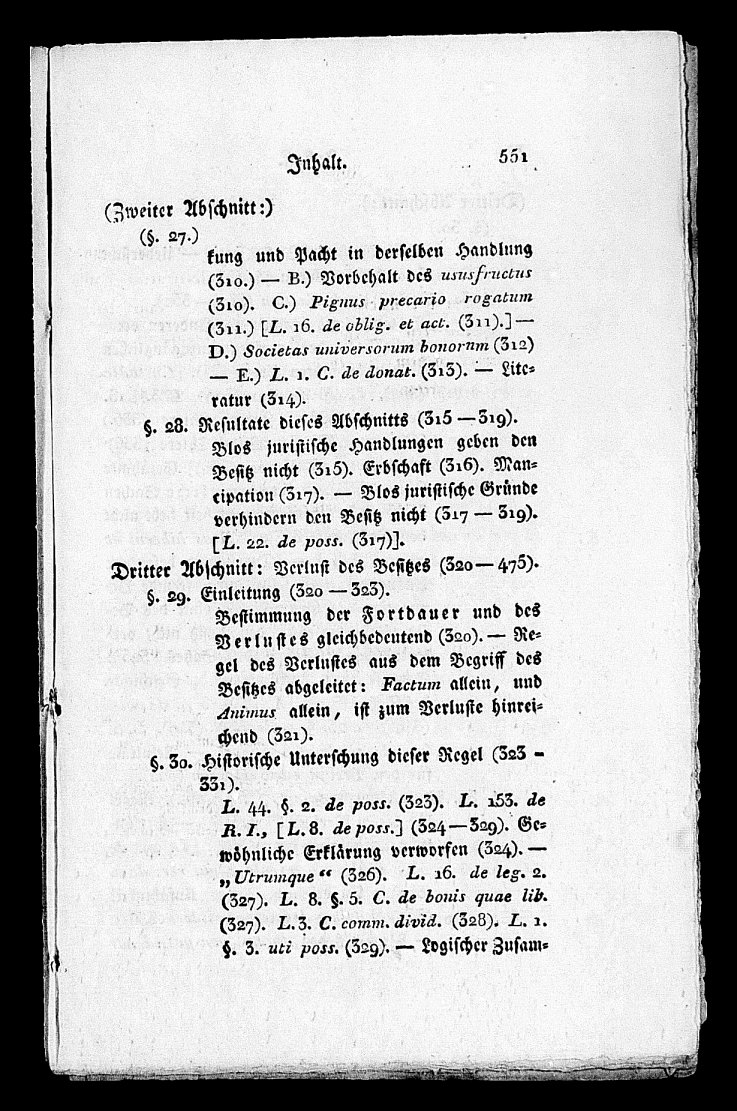 Inhalt. 551
(Zweiter Abschnitt:)
(§. 27.)
kung und Pacht in derselben Handlung
(310.) — B.) Vorbehalt des ususfructus
(310). C.) Pignus precario rogatum
(311.) [L. 16. de oblig. et act. (311).] —
D.) Societas universorum bonorum (312)
— E.) L. 1. C. de donat. (313). — Lite=
ratur (314).
§. 28. Resultate dieses Abschnitts (315 — 319).
Blos juristische Handlungen geben den
Besitz nicht (315). Erbschaft (316). Man=
cipation (317). — Blos juristische Gründe
verhindern den Besitz nicht (317 — 319).
[L. 22. de poss. (317)].
Dritter Abschnitt: Verlust des Besitzes (320 — 475).
§. 29. Einleitung (320 — 323).
Bestimmung der Fortdauer und des
Verlustes gleichbedeutend (320). — Re=
gel des Verlustes aus dem Begriff des
Besitzes abgeleitet: Factum allein, und
Animus allein, ist zum Verluste hinrei=
chend (321).
§. 30. Historische Untersuchung dieser Regel (323 –
331).
L. 44. §. 2. de poss. (323). L. 153. de
R. I., [L. 8. de poss.] (324 — 329). Ge=
wöhnliche Erklärung verworfen (324). —
„Utrumque“ (326). L. 16. de leg. 2.
(327). L. 8. §. 5. C. de bonis quae lib.
(327). L. 3. C. comm. divid. (328). L. 1.
§. 3. uti poss. (329). — Logischer Zusam=